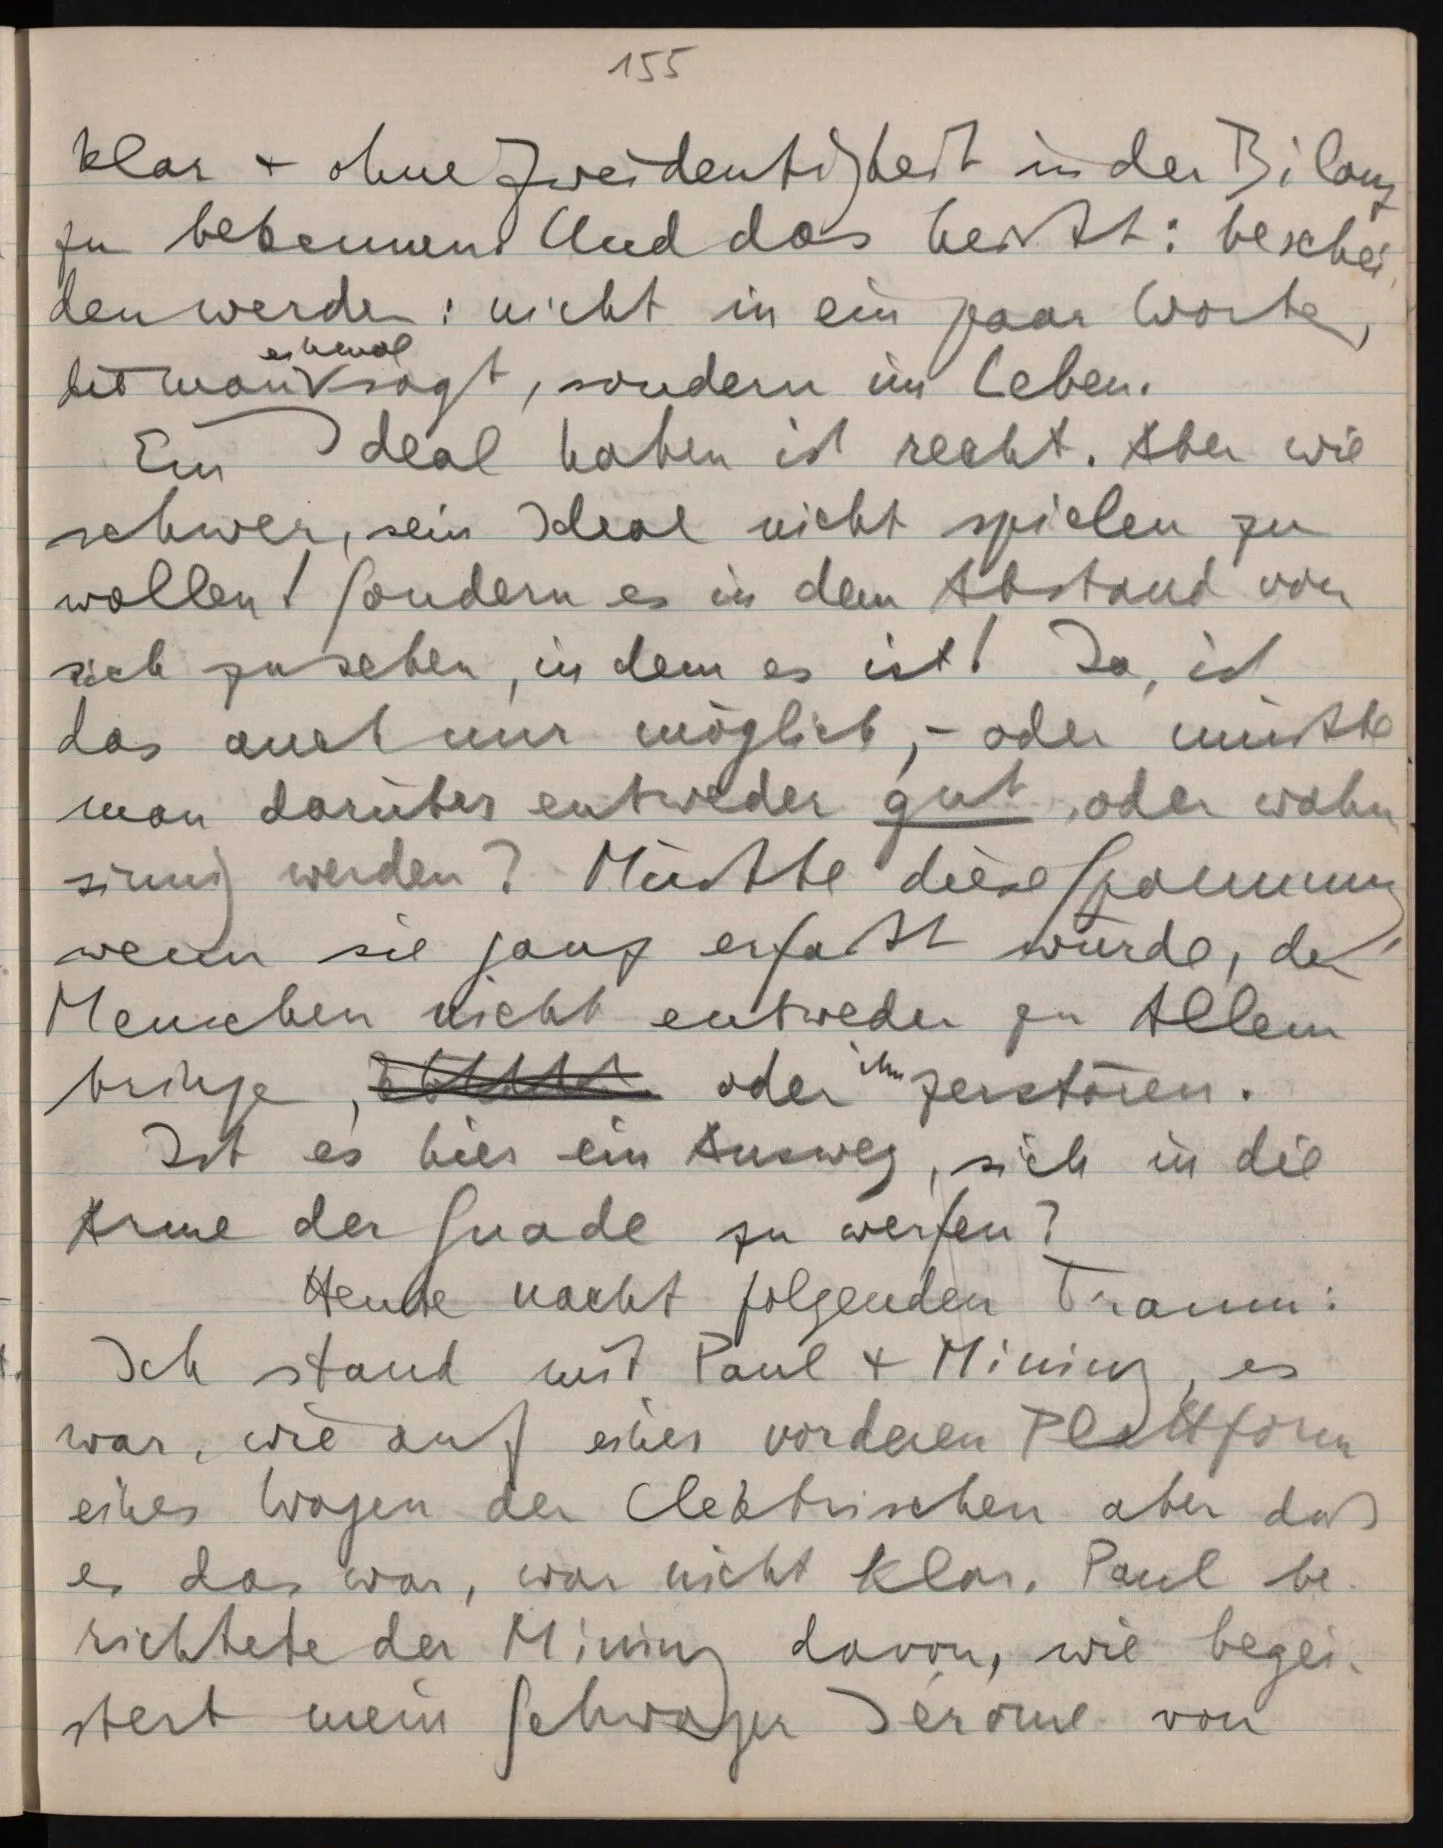 155
klar + ohne Zweideutigkeit in der Bilanz
zu bekennen. Und das heißt: beschei
den werden: nicht in ein paar Worten,
die man einmal sagt, sondern im Leben.
Ein Ideal haben ist recht. Aber wie
schwer, sein Ideal nicht spielen zu
wollen! Sondern es in dem Abstand von
sich zu sehen, in dem es ist! Ja, ist
das auch nur möglich, – oder müßte
man darüber entweder gut oder wahn
sinnig werden? Müßte diese Spannung,
wenn sie ganz erfaßt würde, den
Menschen nicht entweder zu Allem
bringen, oder ihn zerstören.
Ist es hier ein Ausweg, sich in die
Arme der Gnade zu werfen?
Heute nacht folgenden Traum:
Ich stand mit Paul + Mining, es
war, wie auf einer vorderen Plattform
eines Wagen der Elektrischen aber daß
es das war, war nicht klar. Paul be-
richtete der Mining davon, wie begei-
stert mein Schwager Jérôme von